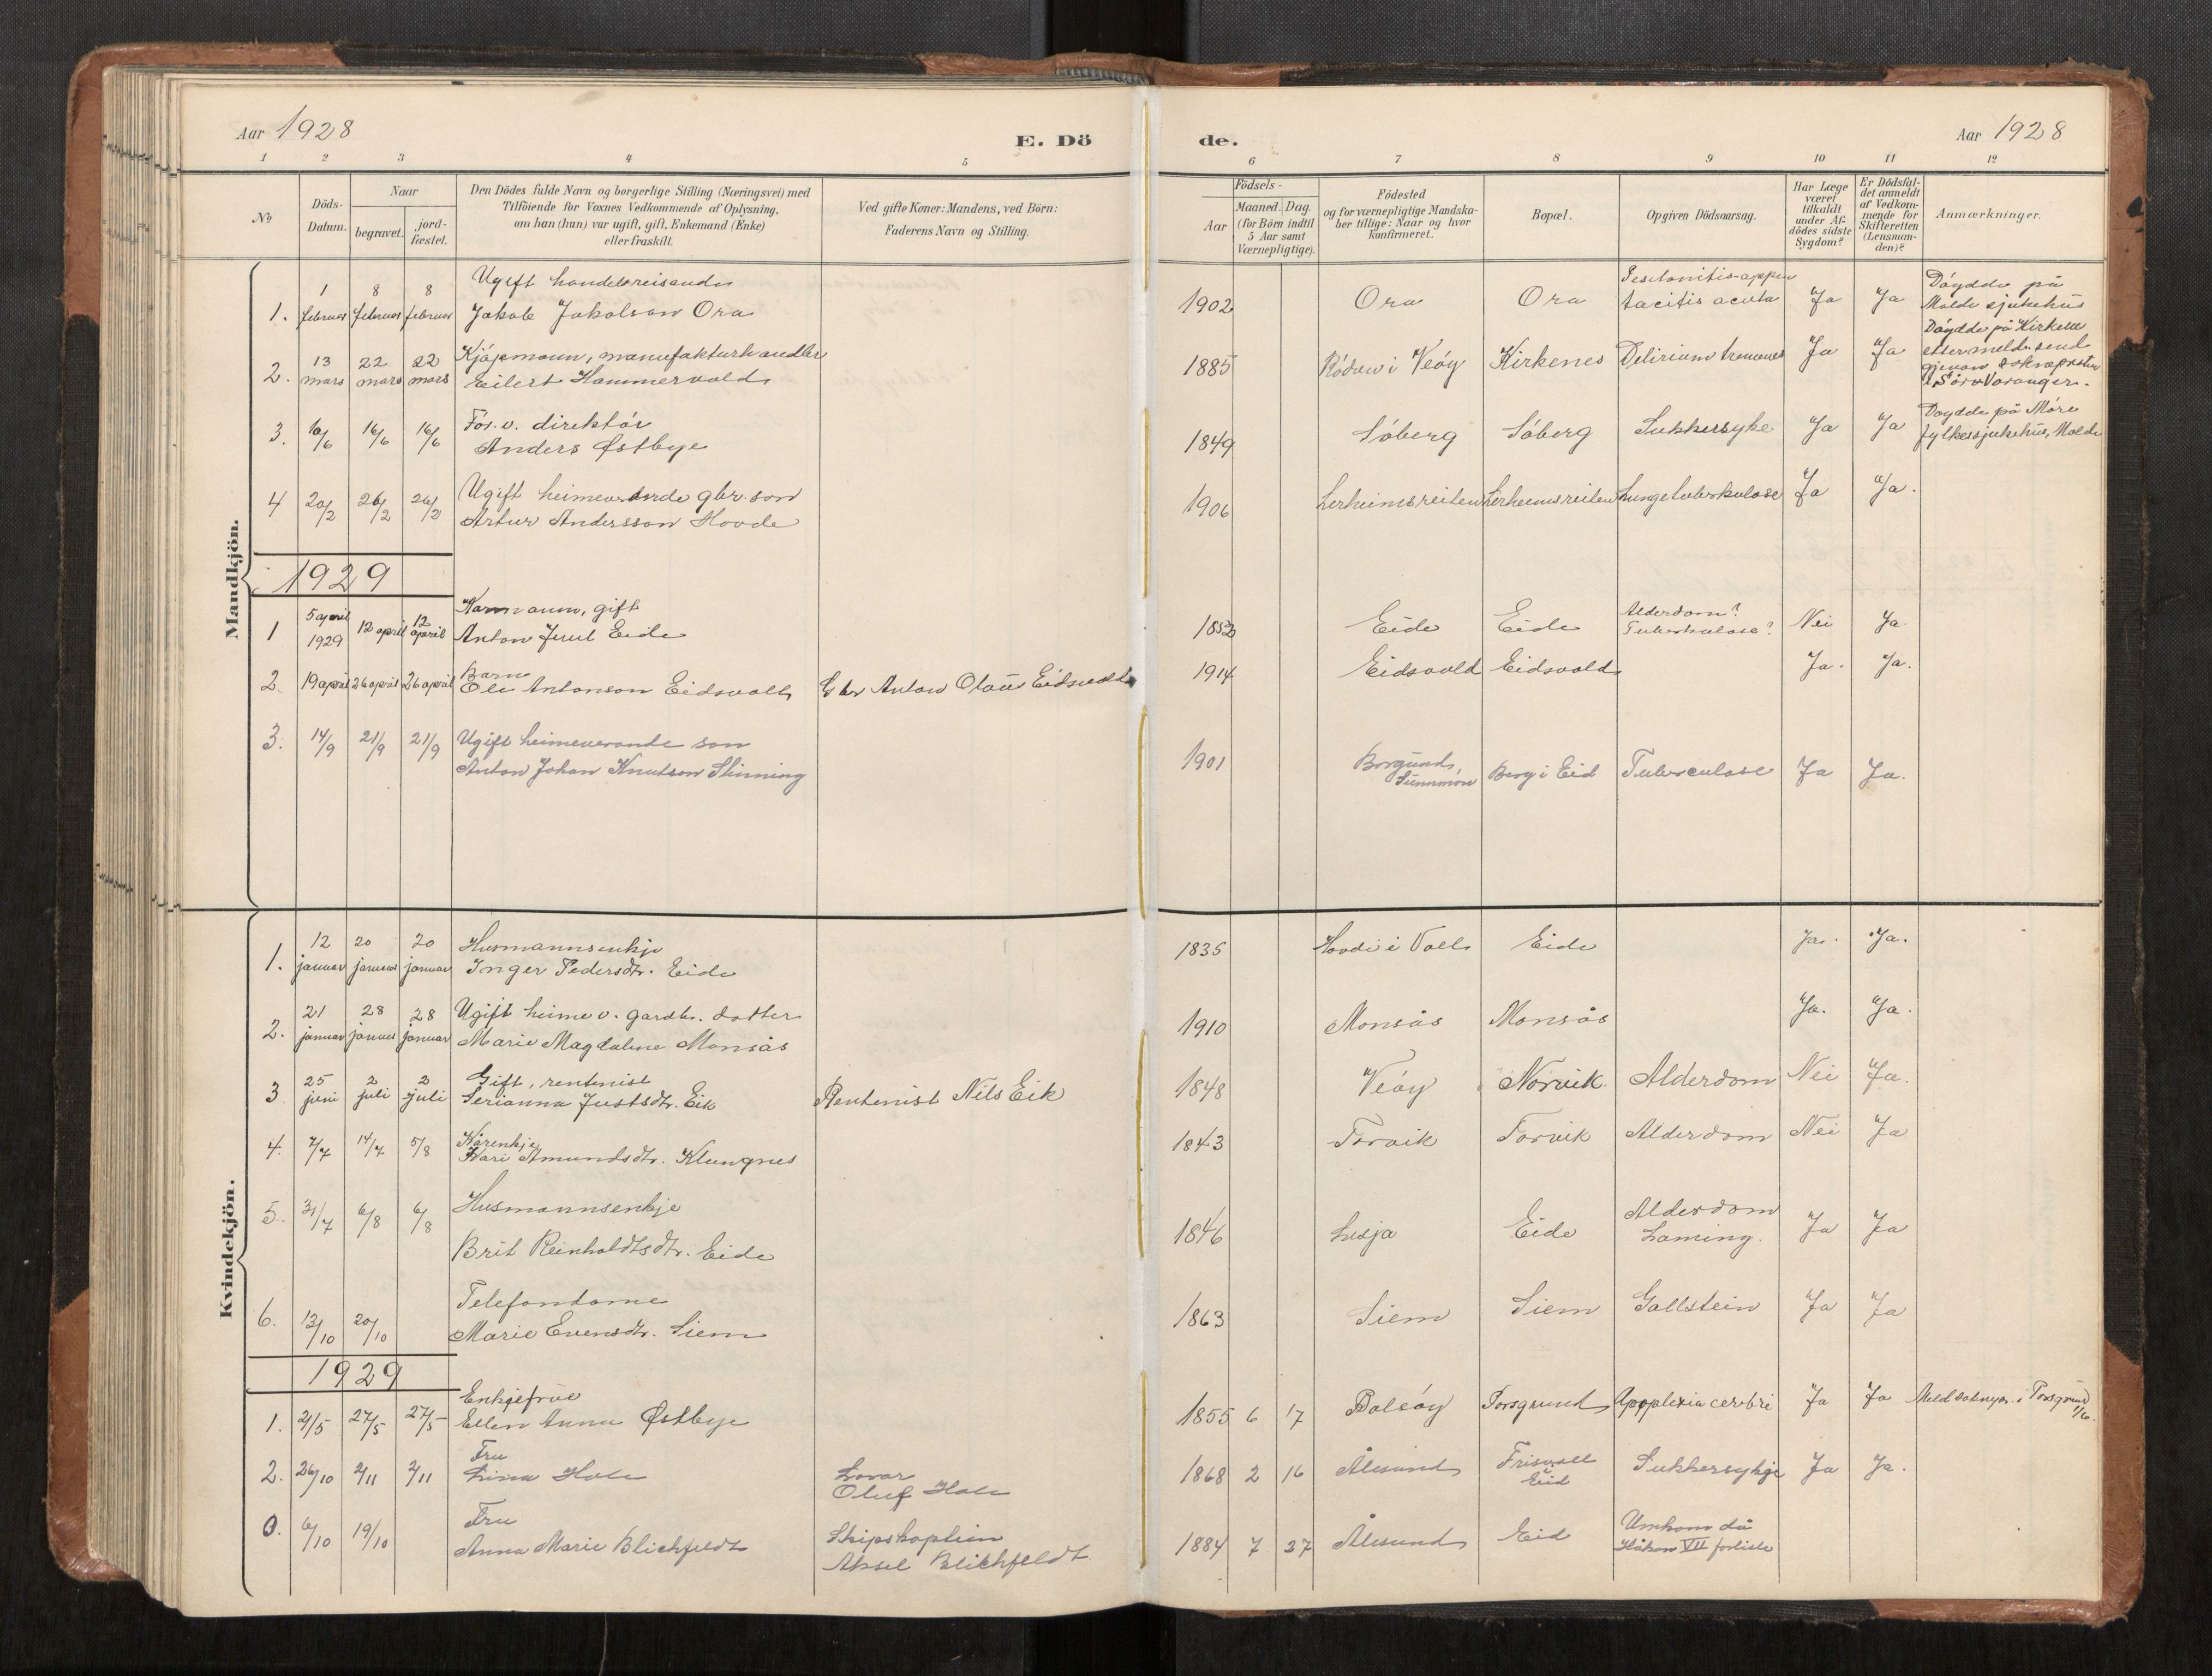 Aar 1928
E. Dö
de.
Aar 1928
1 2 3 4 5 6 7 8 9 10 11 12
No
Döds-
Datum.
Naar
begravet.
jord-
fæstet.
Den Dödes fulde Navn og borgerlige Stilling (Næringsvei) med
Tilföiende for Voxnes Vedkommende af Oplysning,
om han (hun) var ugift, gift, Enkemand (Enke)
eller fraskilt.
Ved gifte Koner: Mandens, ved Börn:
Faderens Navn og Stilling.
Födsels-
Aar
Maaned. Dag.
(for Börn indtil
5 Aar samt
Værnepligtige).
Födested
og for værnepligtige Mandska-
ber tillige: Naar og hvor
konfirmeret.
Bopæl.
Opgiven Dödsaarsag.
Har Læge
været
tilkaldt
under Af-
dödes sidste
Sygdom?
Er Dödsfal-
det anmeldt
af Vedkom-
mende for
Skifteretten
(Lensman-
den)?
Anmærkninger.
Mandkjön.
1 8 8 Ugift handelsreisande Døydde på
1. februar februar februar Jakob Jakobson Ora 1902 Ora Ora acuta Ja Ja Molde sjukehus
13 22 22 Kjøpmann, manufakturhandler Døydde på Kirkenes
2. mars mars mars Eilert Hammervold 1885 Rødven i Veøy Kirkenes Delirium tremens Ja Ja etter melding send
gjenom
i Sør-Varanger.
3. 10/6 16/6 16/6 For. v. direktør Døydde på Møre
Anders Østbye 1849 Søberg Søberg Sukkersyke Ja Ja fylkessjukehus, Molde
4 20/2 26/2 26/2 Ugift heimeverande gbr. son
Artur Andersson Hovde 1906 Lerheimsreiten Lerheimsreiten Lungetuberkulose Ja Ja.
1929
5 april 12 Kårmann, gift Alderdom?
1 1929 12 april april Anton Juul Eide 1852 Eide Eide Tuberkulose? Nei Ja.
Barn
2. 19 april 26 april 26 april Ole Antonson Eidsvold Gbr Anton Olaus Eidsvold 1914 Eidsvold Eidsvold Ja. Ja.
3. 14/9 21/9 21/9 Ugift heimeverande son
Anton Johan Knutson Slinning 1901 Borgund, Sunnmøre Berg i Eid Tuberculose Ja Ja.
Kvindekjön.
12 20 20 Husmannsenkje
1. januar januar januar Inger Pedersdtr. Eide 1835 Hovde i Voll Eide Ja. Ja.
21 28 28 Ugift heimev. gardbr. dotter
2. januar januar januar Marie Magdalene Monsås 1910 Monsås Monsås Ja. Ja.
25 2 2 Gift, rentenist
3 juni juli juli Serianna Justsdtr. Eik Rentenist Nils Eik 1848 Veøy Norvik Alderdom Nei Ja.
Kårenkje
4. 7/7 14/7 5/8 Kari Amundsdtr. Klungnes 1843 Torvik Torvik Alderdom Nei Ja
5. 31/7 6/8 6/8 Husmannsenkje Alderdom
Brit Reinholdtsdtr. Eide 1846 Lesja Eide Laming. Ja Ja
Telefondame
6. 13/10 20/10 Marie Evensdtr. Siem 1863 Siem Siem Gallstein Ja Ja
1929
Enkjefrue
1. 21/5 27/5 27/5 Ellen Anna Østbye 1855 6 17 Bolsøy Porsgrund Apoplexia cerebri Ja Ja Meld i Porsgrund
1/6.
Fru
2. 26/10 2/11 2/11 Lina Hole Lovar Oluf Hole 1868 2 16 Ålesund Frisvoll i Eid Sukkersykje Ja Ja.
Fru
0. 6/10 19/10 Anna Marie Blichfeldt Skipskaptein Aksel Blichfeldt 1884 7 27 Ålesund Eid Umkom då
Håkon VII forliste